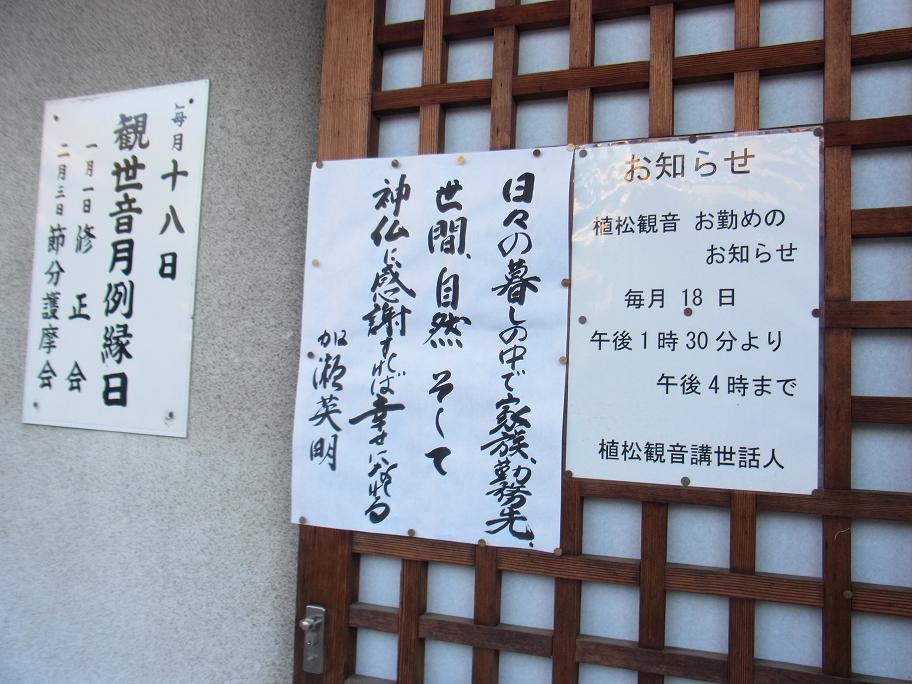 毎月十八日
観世音月例縁日
一月一日修正会
二月三日節分護摩会
日々の暮しの中で家族、勤務先、
世間、自然そして
神仏に感謝すれば幸せになれる
加瀬英明
お知らせ
植松観音 お勤めの
お知らせ
毎月 18 日
午後1時30分より
午後4時まで
植松観音講世話人